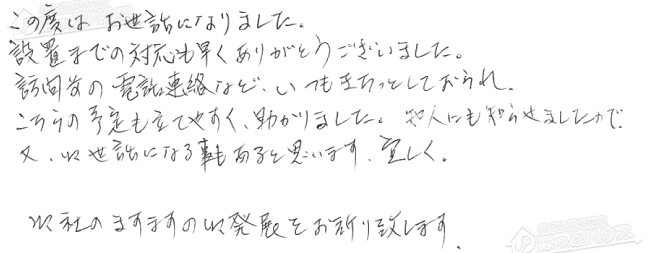 この度は お世話になりました。
設置までの対応も早くありがとうございました。
訪問前の電話連絡など、いつもきちっとしておられ、
こちらの予定も立てやすく、助かりました。知人にも知らせましたので、
又、お世話になる事もあると思います。宜しく。
御社のますますの御発展をお祈り致します。